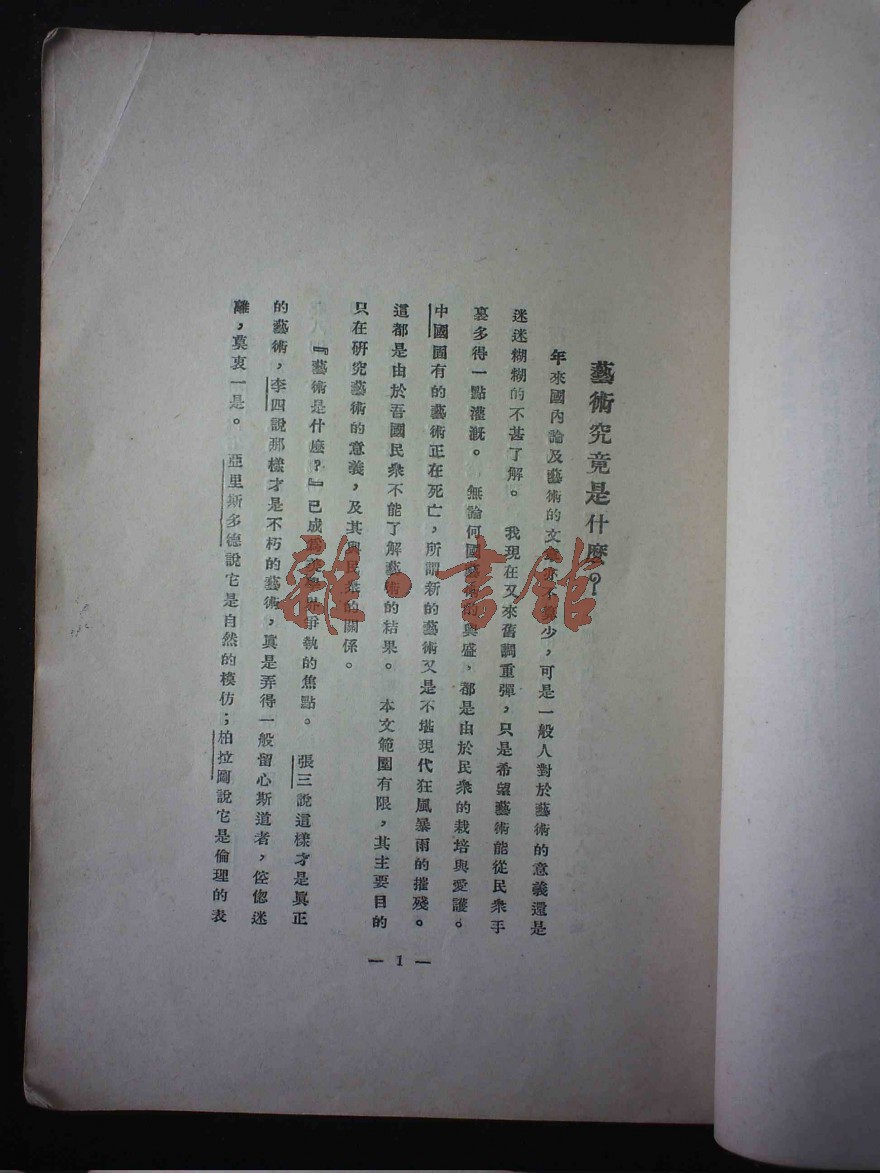 藝術究竟是什麼？
年來國內論及藝術的文章亦不算少，可是一般人對於藝術的意義還是
迷迷糊糊的不甚了解。 我現在又來舊調重彈，只是希望藝術能從民衆手
裏多得一點灌漑。 無論何國藝術的興盛，都是由於民衆的栽培與愛護。
中國固有的藝術正在死亡，所謂新的藝術又是不堪現代狂風暴雨的摧殘。
這都是由於吾國民衆不能了解藝術的結果。 本文範圍有限，其主要目的
只在研究藝術的意義，及其與民衆的關係。
『藝術是什麼？』已成爲美學界爭執的焦點。 張三說這樣才是眞正
的藝術，李四說那樣才是不朽的藝術，眞是弄得一般留心斯道者，倥偬迷
離，莫衷一是。 亞里斯多德說它是自然的模仿；柏拉圖說它是倫理的表
— 1 —
雜·書館